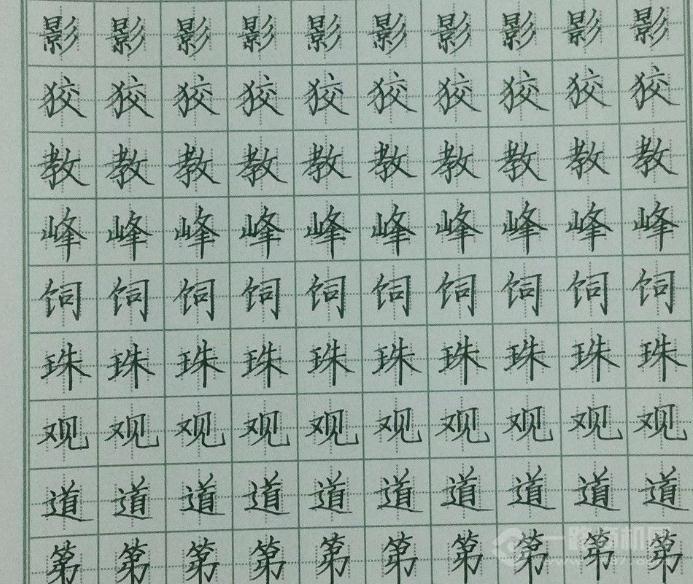 影影影影影影影影影影
狡狡狡狡狡狡狡狡狡狡
教教教教教教教教教教
峰峰峰峰峰峰峰峰峰峰
饲饲饲饲饲饲饲饲饲饲
珠珠珠珠珠珠珠珠珠珠
观观观观观观观观观观
道道道道道道道道道道
第第第第第第第第第第